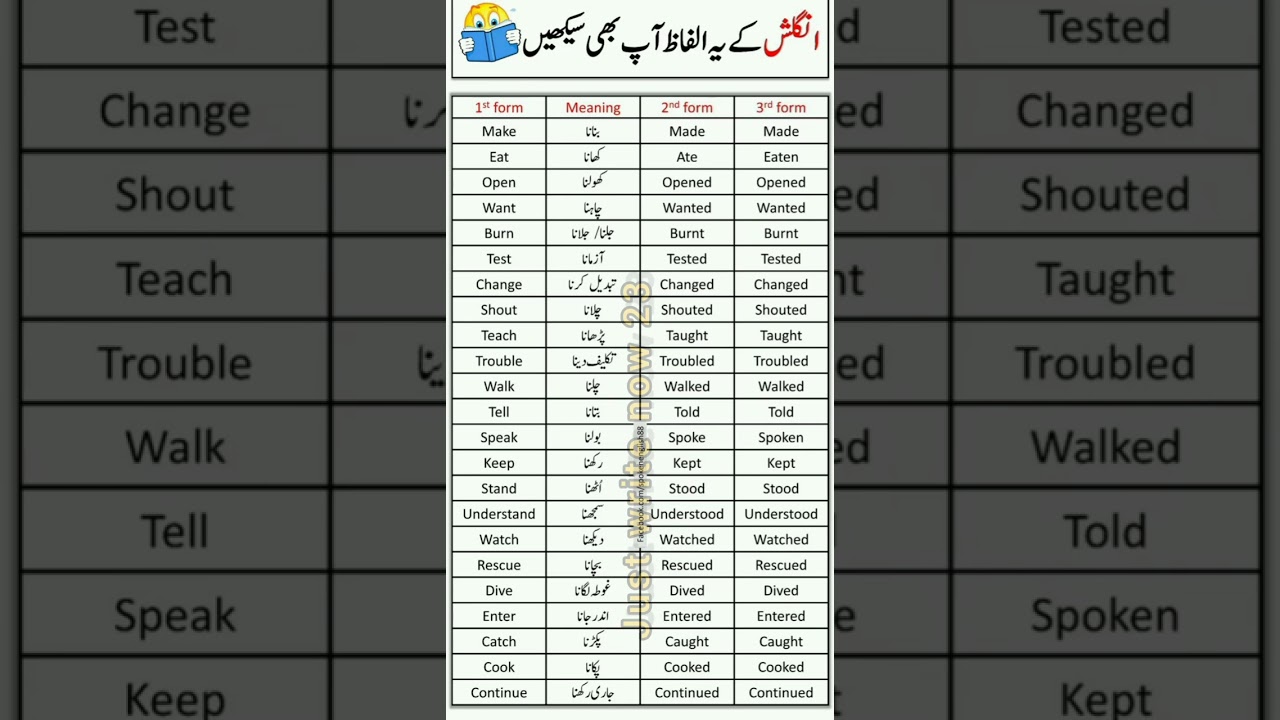 انگلش کے یہ الفاظ آپ بھی سیکھیں
1st form Meaning 2nd form 3rd form
Make بنانا Made Made
Eat کھانا Ate Eaten
Open کھولنا Opened Opened
Want چاہنا Wanted Wanted
Burn جلنا/ جلانا Burnt Burnt
Test آزمانا Tested Tested
Change تبدیل کرنا Changed Changed
Shout چلانا Shouted Shouted
Teach پڑھانا Taught Taught
Trouble تکلیف دینا Troubled Troubled
Walk چلنا Walked Walked
Tell بتانا Told Told
Speak بولنا Spoke Spoken
Keep رکھنا Kept Kept
Stand اُٹھنا Stood Stood
Understand سمجھنا Understood Understood
Watch دیکھنا Watched Watched
Rescue بچانا Rescued Rescued
Dive غوطہ لگانا Dived Dived
Enter اندر جانا Entered Entered
Catch پکڑنا Caught Caught
Cook پکانا Cooked Cooked
Continue جاری رکھنا Continued Continued
Just write now 23
Test Tested
Change Changed
Shout Shouted
Teach Taught
Trouble Troubled
Walk Walked
Tell Told
Speak Spoken
Keep Kept